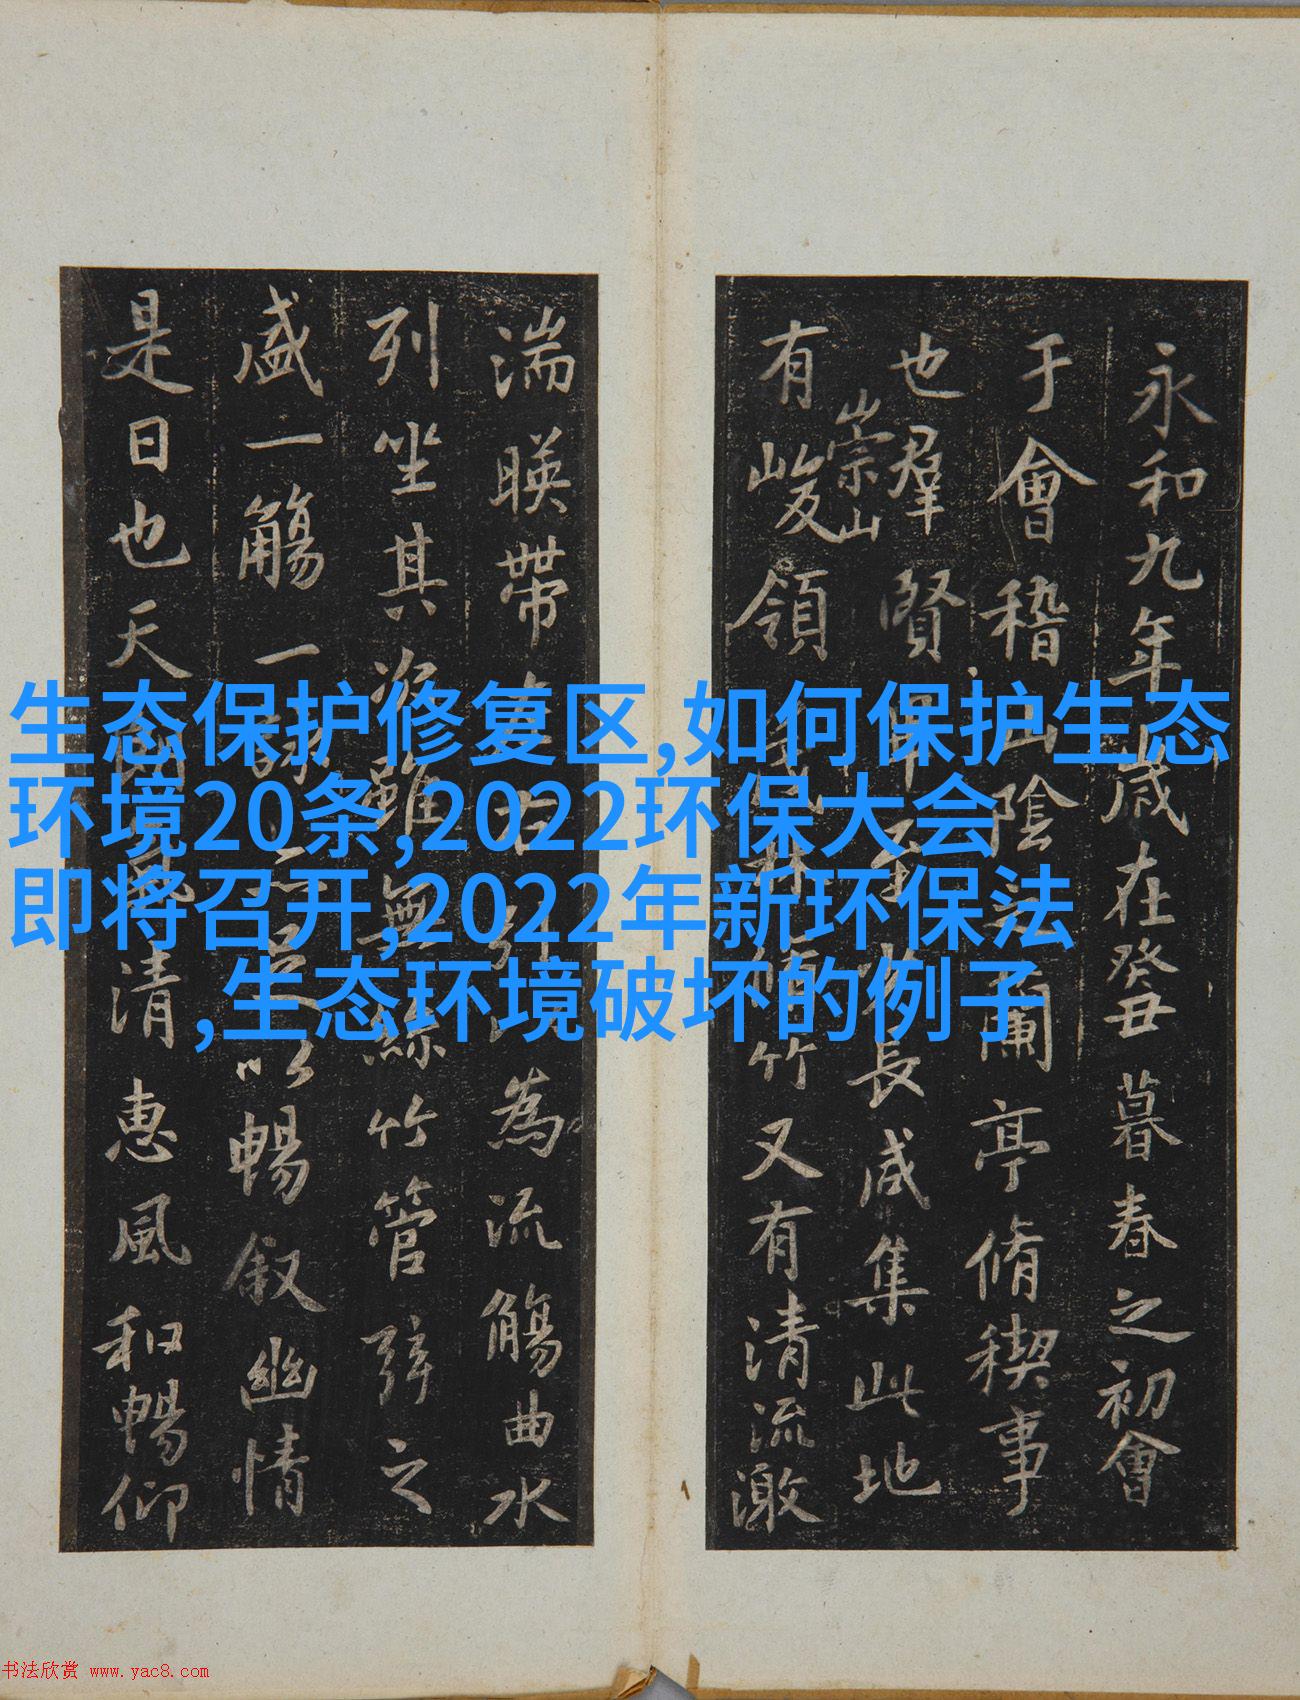 永和九年歲在癸丑暮春之初會
于會稽山陰之蘭亭脩稧事
也羣賢畢至少長咸集此地
有崇山峻領茂林脩竹又有清流激
湍暎帶左右引以為流觴曲水
列坐其次雖無絲竹管弦之
盛一觴一詠亦足以暢叙幽情
是日也天朗氣清惠風和暢仰
生态保护修复区,如何保护生态
环境20条,2022环保大会
即将召开,2022年新环保法
,生态环境破坏的例子
书法欣赏 www.yac8.com